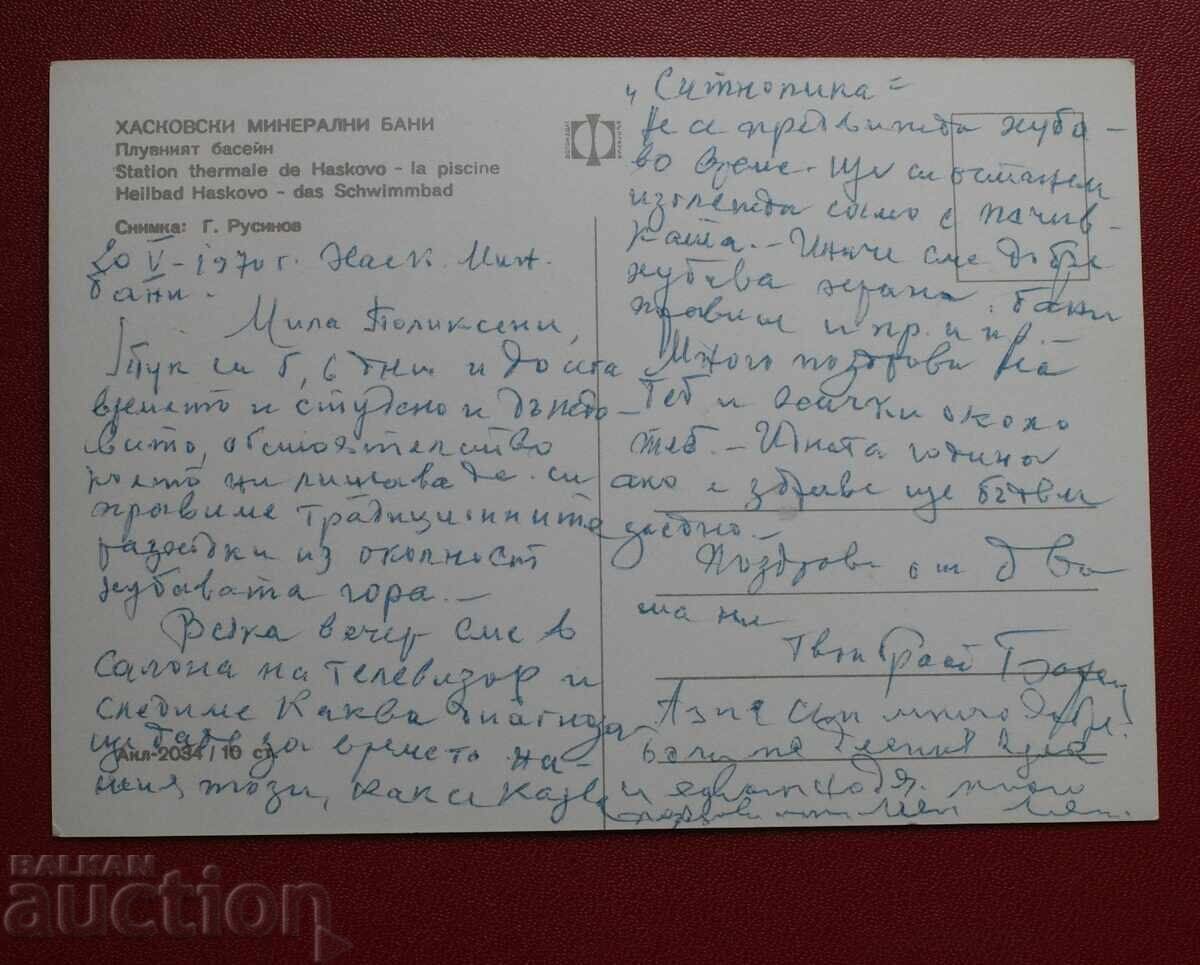 ХАСКОВСКИ МИНЕРАЛНИ БАНИ
Плувният басейн
Station thermale de Haskovo - la piscine
Heilbad Haskovo - das Schwimmbad
Снимка: Г. Русинов
20 V - 1970 г. Хаск. Мин.
бани.
Мила Поликсени,
Тук сме 5, 6 дни и доста
времето и студено и дъждо-
вито, обстоятелство
което ни лишава да си
правиме традиционните
разходки из околност
хубавата гора. -
Всяка вечер сме в
салона на телевизор и
следиме каква диагноза
ще даде за времето на-
шия този, как се казва
Акл-2034 / 10 ст.
„Ситнопика"
Не се предвижда хуба-
во време. Ще си останем
изглежда само с почив-
ката. - Иначе сме добре
хубава храна, бани
правиш и пр. и пр.
Много поздрави на
теб и всички около
теб. - Идната година
ако е здраве ще бъдем
заедно. -
Поздрави от два
ма ни
Твой брат
Аз се много добре!
и много
поздрави от мен
BALKAN
auction